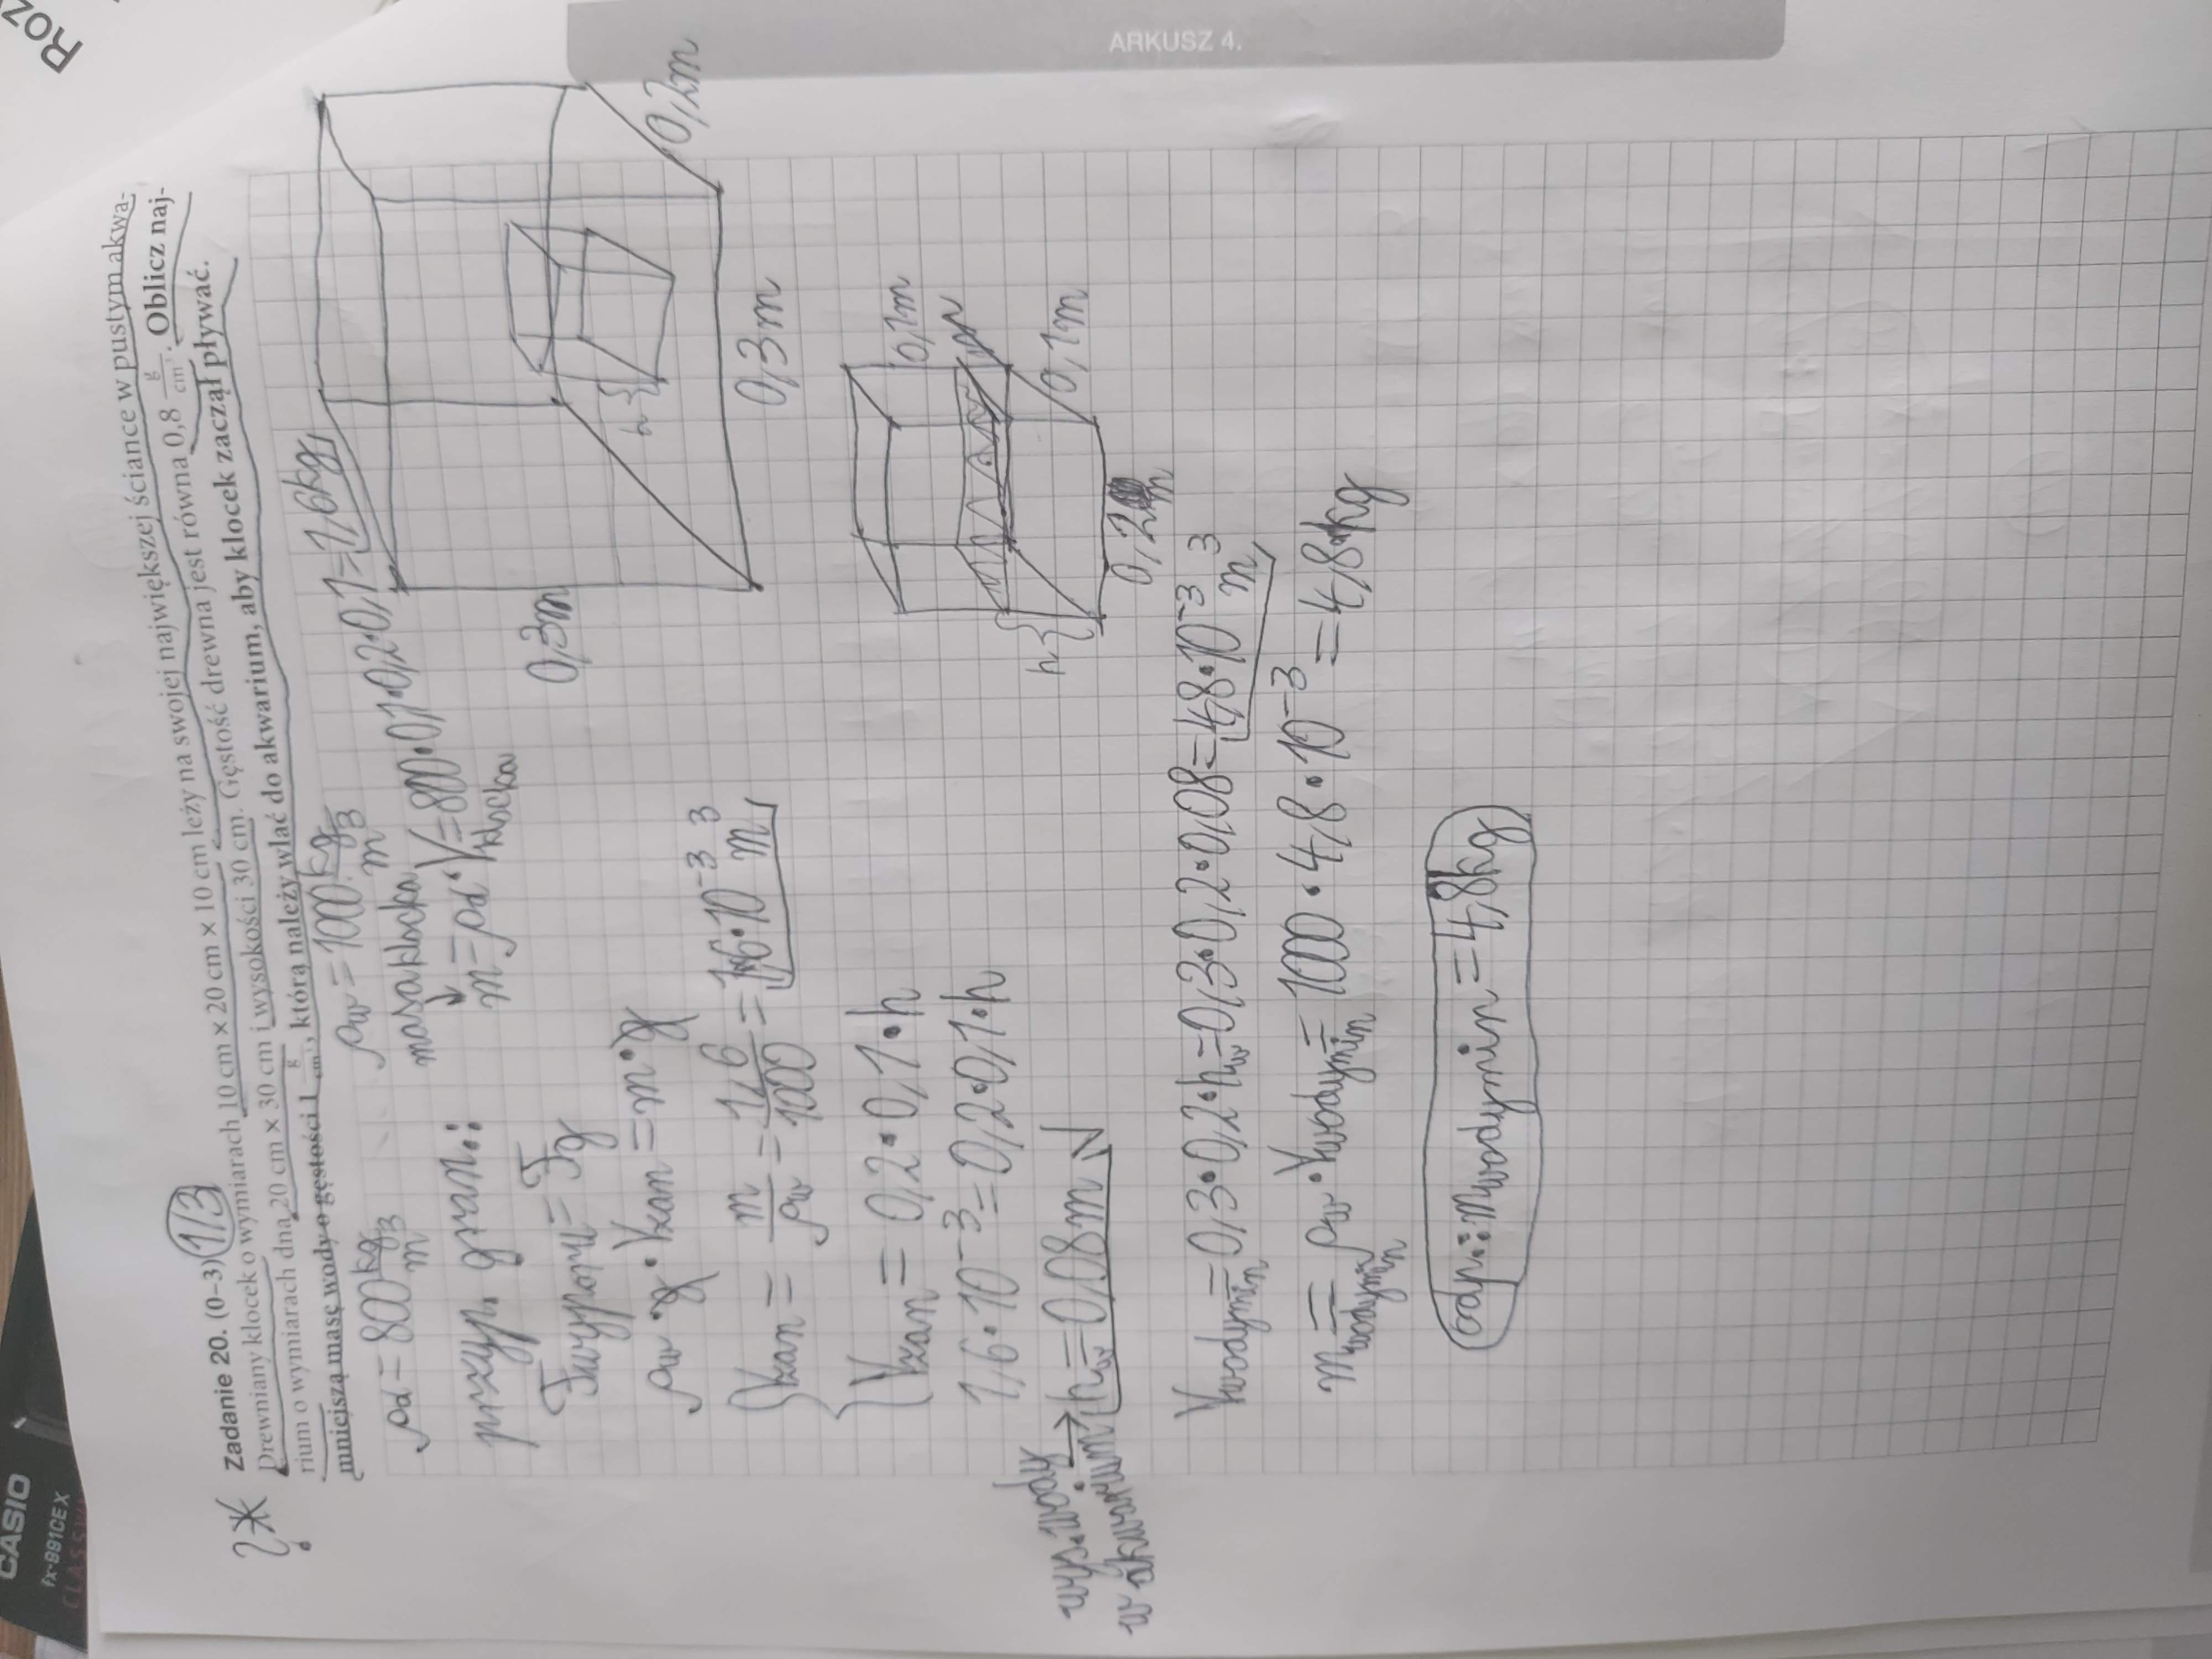 Roz
CASIO
fx-991CEX
CLASS
ARKUSZ 4.
?* Zadanie 20. (0–3) 1/3
Drewniany klocek o wymiarach 10 cm × 20 cm × 10 cm leży na swojej największej ściance w pustym akwa-
rium o wymiarach dna 20 cm × 30 cm i wysokości 30 cm. Gęstość drewna jest równa 0,8 g/cm³. Oblicz naj-
mniejszą masę wody o gęstości 1 g/cm³, którą należy wlać do akwarium, aby klocek zaczął pływać.
ρd = 800 kg/m³ ρw = 1000 kg/m³
masa klocka
m = ρd · Vklocka = 800·0,1·0,2·0,1 = 1,6kg
przyp. gran.:
Fwyporu = Fg
ρw · g · Vzan = m · g
Vzan = m/ρw = 1,6/1000 = 1,6·10⁻³ m³
Vzan = 0,2 · 0,1 · h
1,6·10⁻³ = 0,2·0,1·h
wys. wody w akwarium → hw = 0,08m
0,3m
0,3m
0,2m
h
0,1m
0,1m
0,2m
h
Vwodymin = 0,3·0,2·hw = 0,3·0,2·0,08 = 4,8·10⁻³ m³
mwodymin = ρw · Vwodymin = 1000 · 4,8 · 10⁻³ = 4,8kg
odp.: mwodymin = 4,8kg